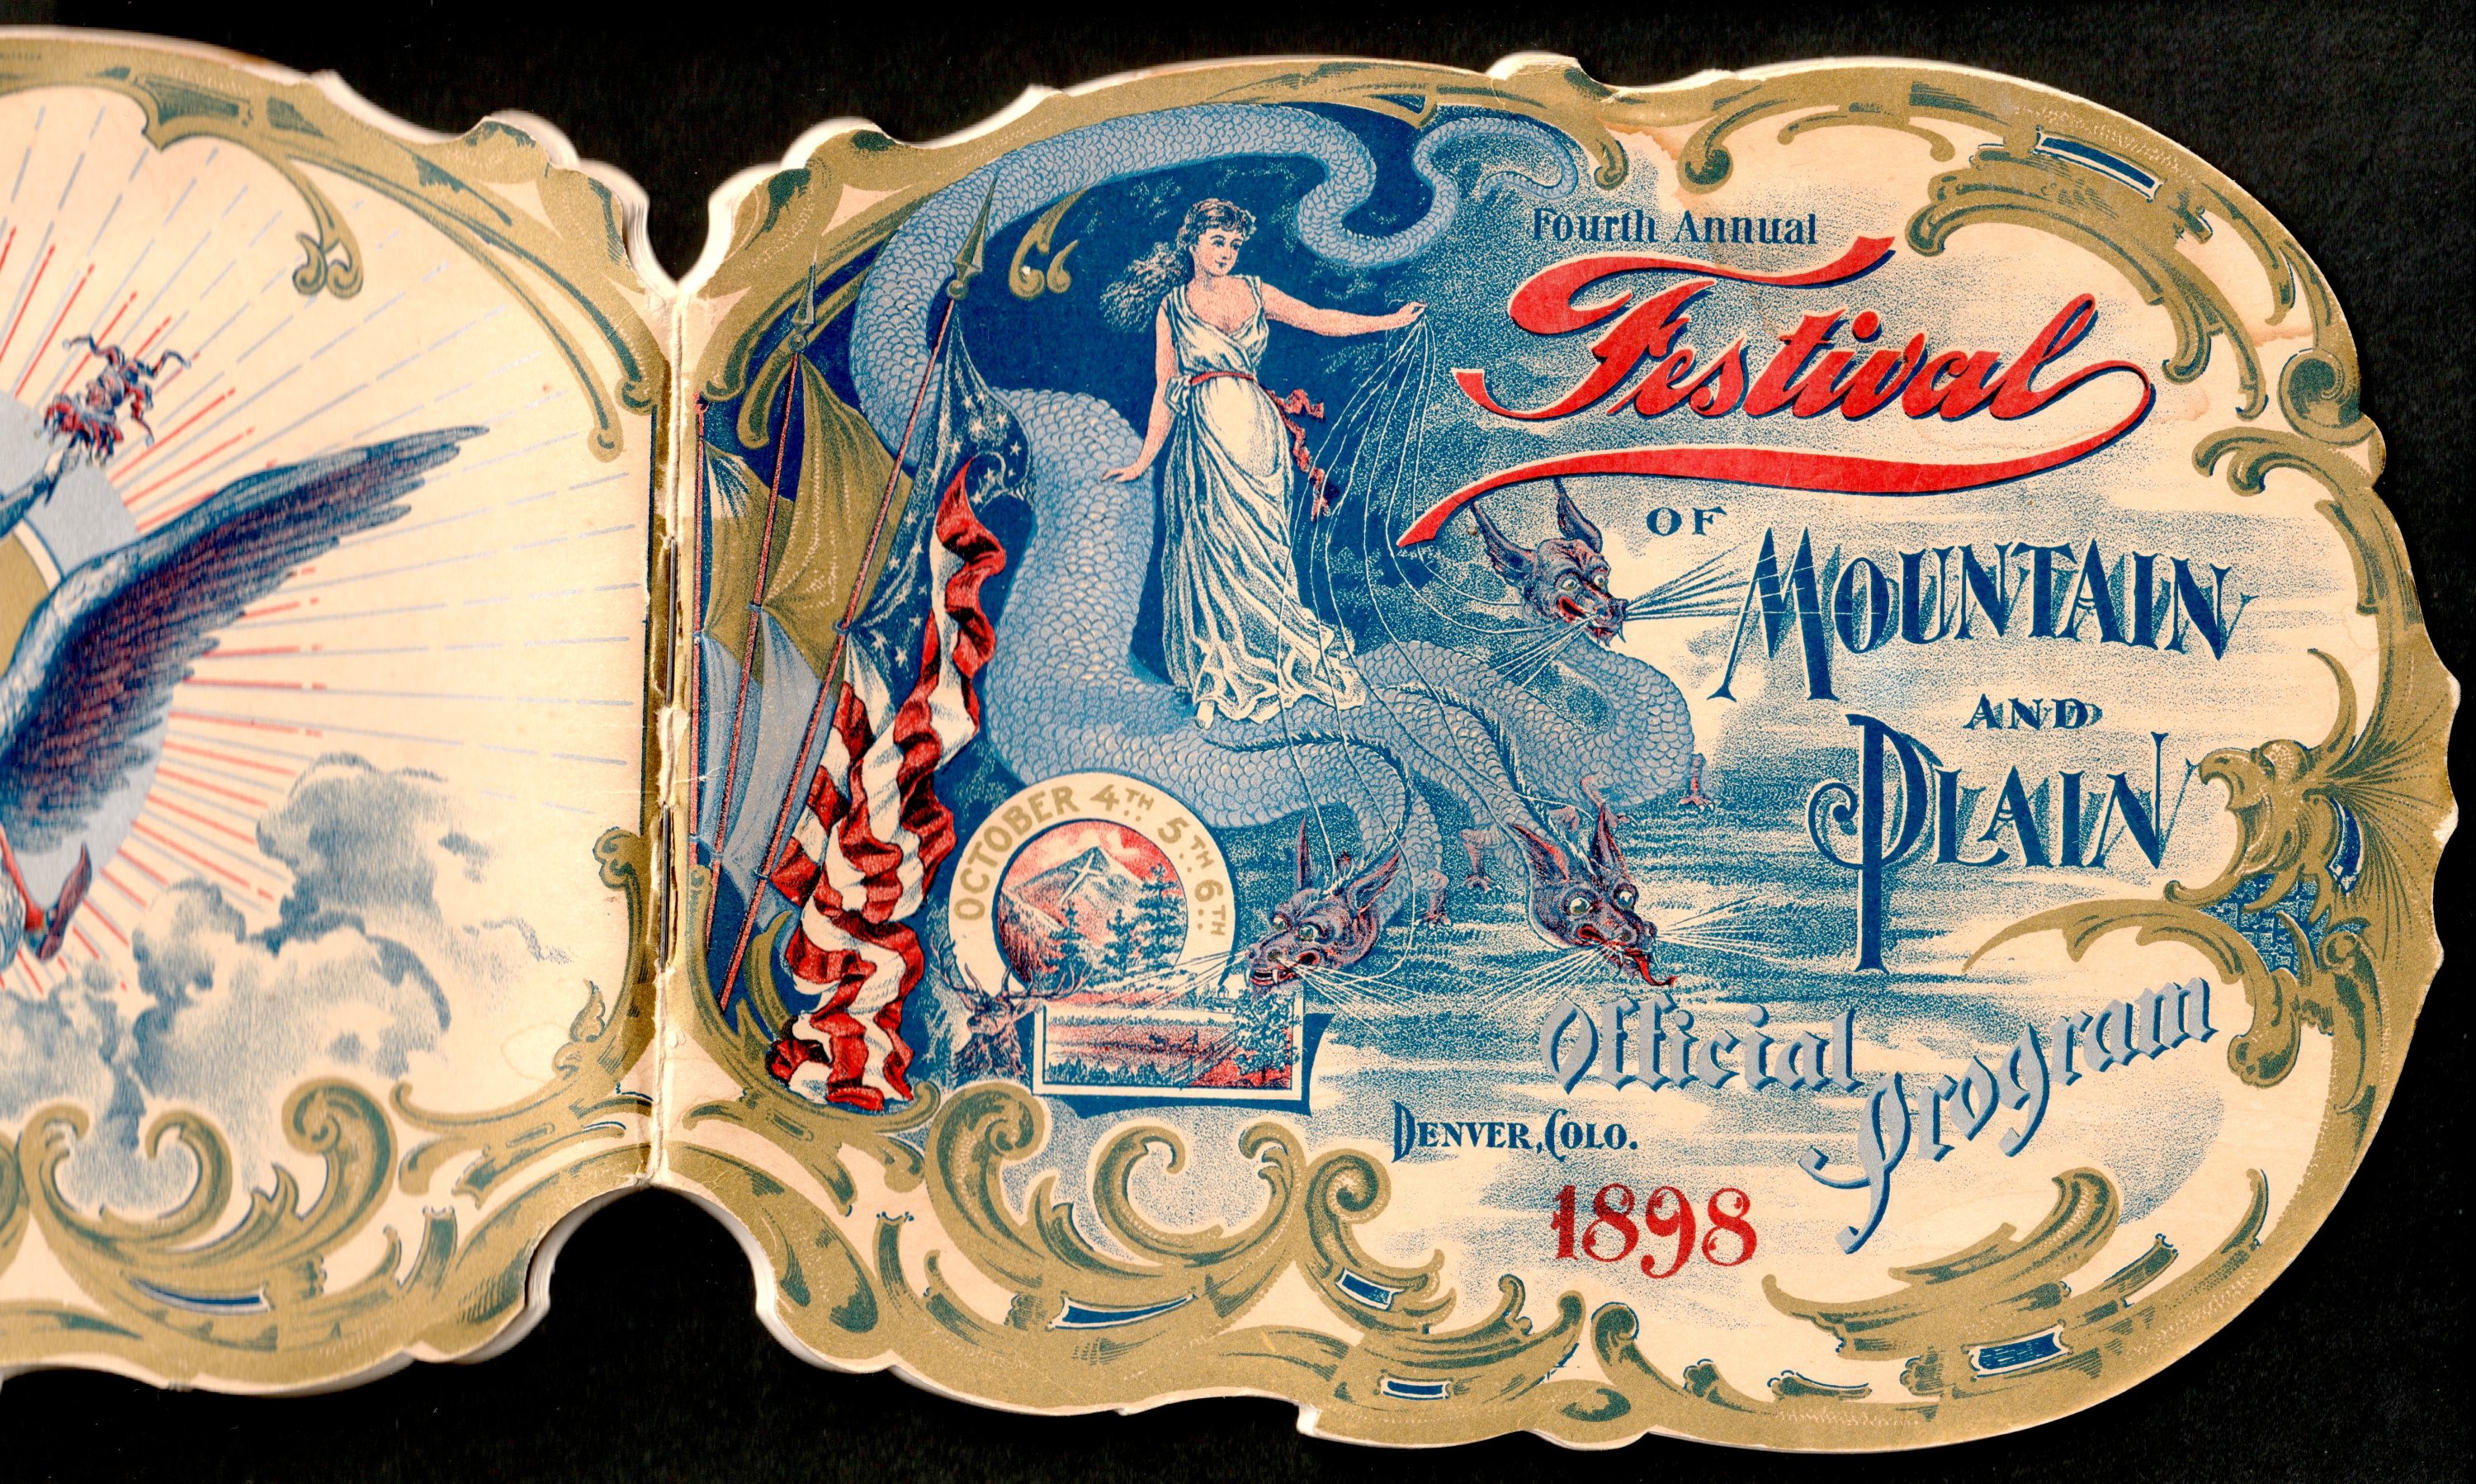 Fourth Annual
Festival
OF
MOUNTAIN
AND
PLAIN
OCTOBER 4TH 5TH 6TH
Official
Program
DENVER, COLO.
1898